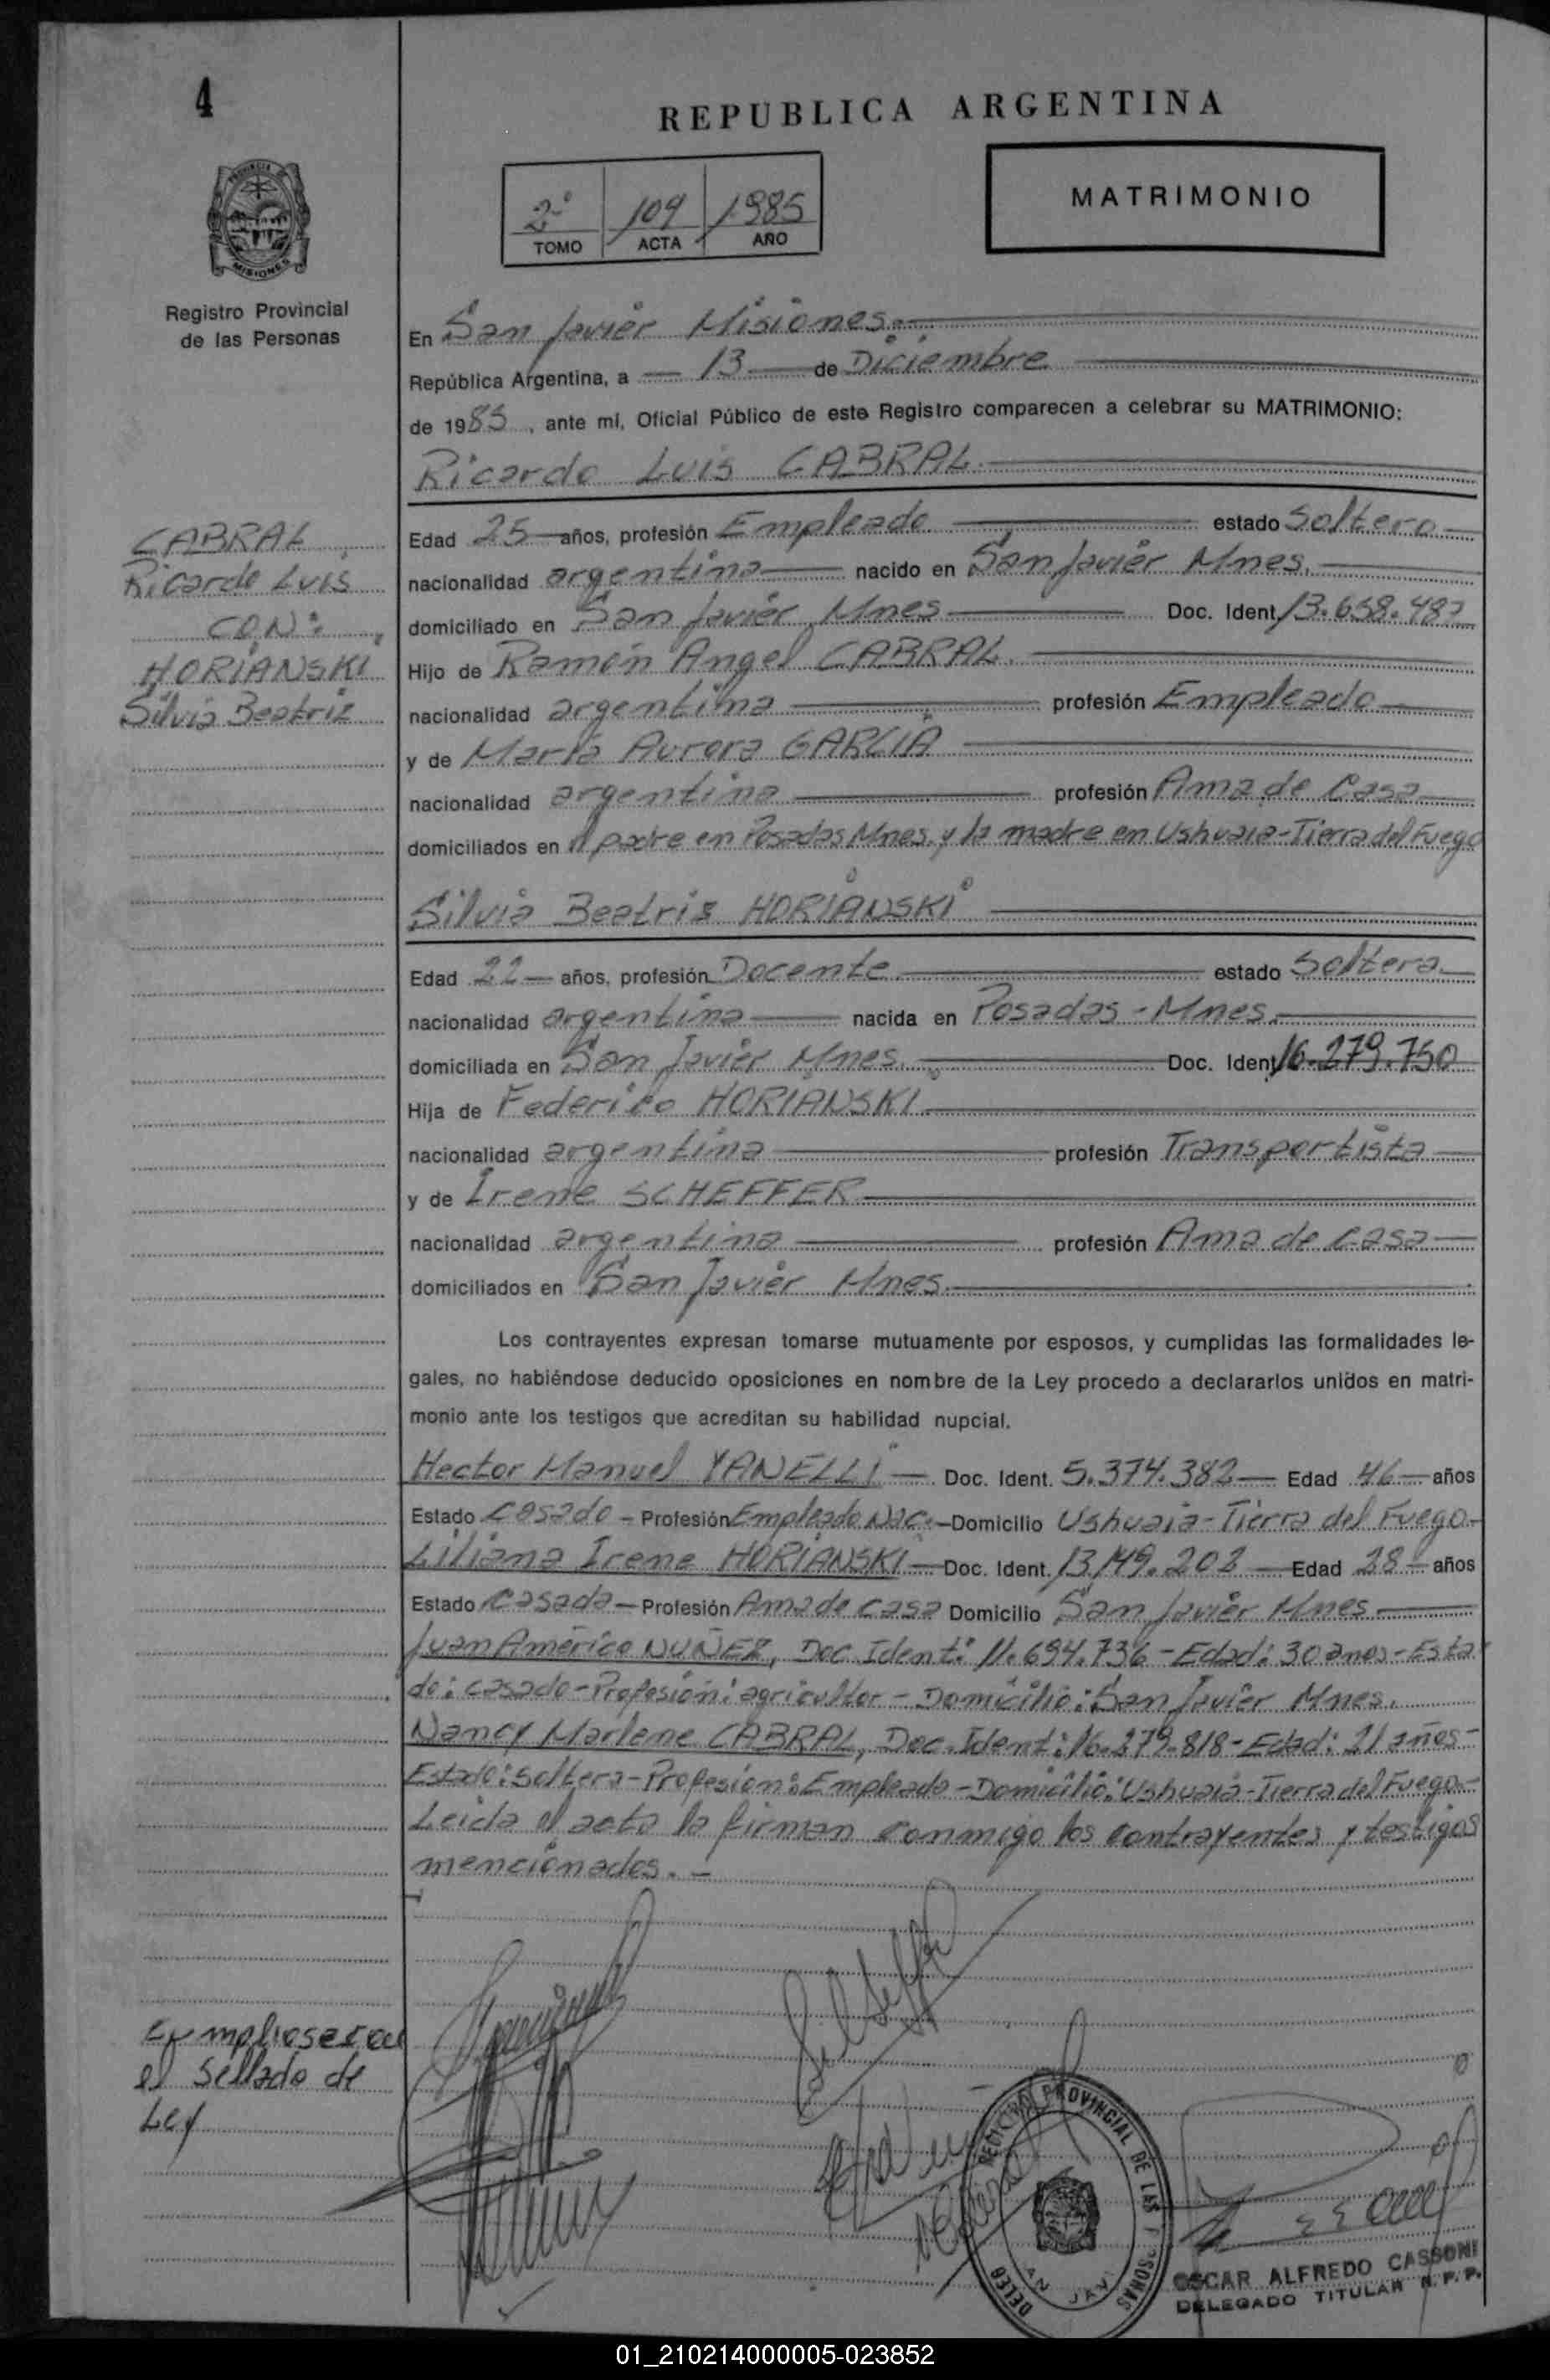 4
REPUBLICA ARGENTINA
PROVINCIA DE
MISIONES
Registro Provincial
de las Personas
2º 109 1985
TOMO ACTA AÑO
MATRIMONIO
En San Javier Misiones.
República Argentina, a 13 de Diciembre
de 1985, ante mi, Oficial Público de este Registro comparecen a celebrar su MATRIMONIO:
Ricardo Luis CABRAL
CABRAL
Ricardo Luis
CON:
HORIANSKI
Silvia Beatriz
Edad 25 años, profesión Empleado estado Soltero
nacionalidad argentina nacido en San Javier Mnes.
domiciliado en San Javier Mnes Doc. Ident. 13.658.487
Hijo de Ramón Angel CABRAL.
nacionalidad argentina profesión Empleado
y de María Aurora GARCIA
nacionalidad argentina profesión Ama de Casa
domiciliados en el padre en Posadas Mnes. y la madre en Ushuaia-Tierra del Fuego
Silvia Beatris HORIANSKI
Edad 22 años, profesión Docente estado Soltera
nacionalidad argentina nacida en Posadas - Mnes.
domiciliada en San Javier Mnes. Doc. Ident. 16.279.750
Hija de Federico HORIANSKI
nacionalidad argentina profesión Transportista
y de Irene SCHEFFER
nacionalidad argentina profesión Ama de casa
domiciliados en San Javier Mnes.
Los contrayentes expresan tomarse mutuamente por esposos, y cumplidas las formalidades le-
gales, no habiéndose deducido oposiciones en nombre de la Ley procedo a declararlos unidos en matri-
monio ante los testigos que acreditan su habilidad nupcial.
Hector Manuel YANELLI - Doc. Ident. 5.374.382 - Edad 46 - años
Estado Casado - Profesión Empleado Nac. - Domicilio Ushuaia - Tierra del Fuego.
Liliana Irene HORIANSKI - Doc. Ident. 13.149.202 - Edad 28 - años
Estado Casada - Profesión Ama de casa Domicilio San Javier Mnes
Juan Américo NUÑEZ, Doc. Ident: 11.694.736 - Edad: 30 años - Esta
do: casado - Profesión: agricultor - Domicilio: San Javier Mnes.
Nancy Marlene CABRAL, Doc. Ident: 16.279.818 - Edad: 21 años -
Estado: soltera - Profesión: Empleada - Domicilio: Ushuaia - Tierra del Fuego.-
Leida el acta la firman conmigo los contrayentes y testigos
mencionados. -
el sellado de
Ley
REGISTRO PROVINCIAL DE LAS PERSONAS
OSCAR ALFREDO CASSONI
DELEGADO TITULAR R. P. P.
01_210214000005-023852